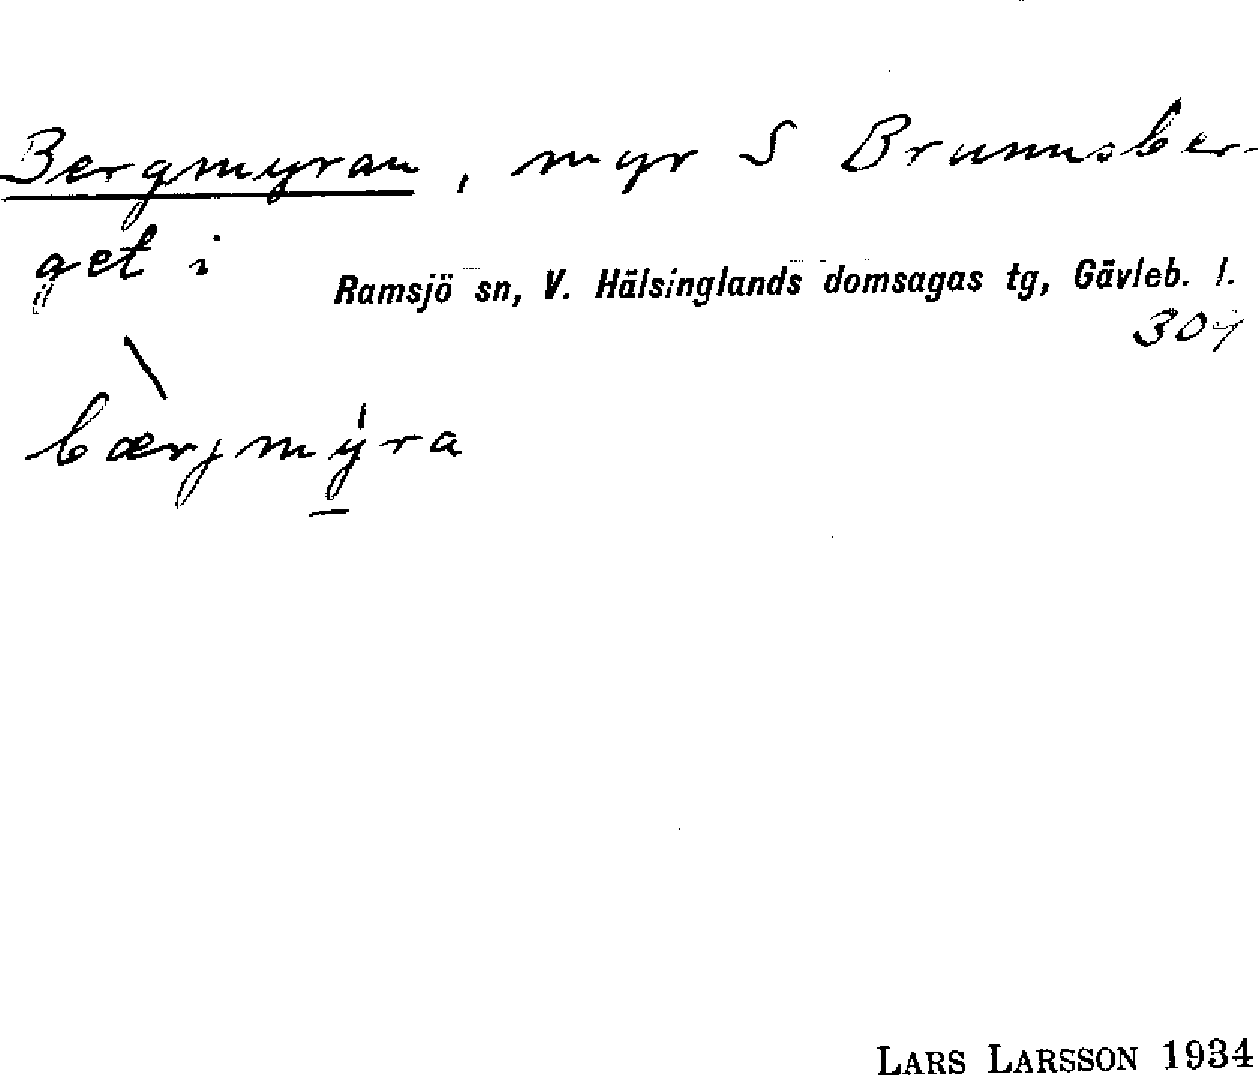 Bergmyran, myr S Brunnsber-
get i
Ramsjö sn, V. Hälsinglands domsagas tg, Gävleb. l.
bærjmý̱ra
LARS LARSSON 1934